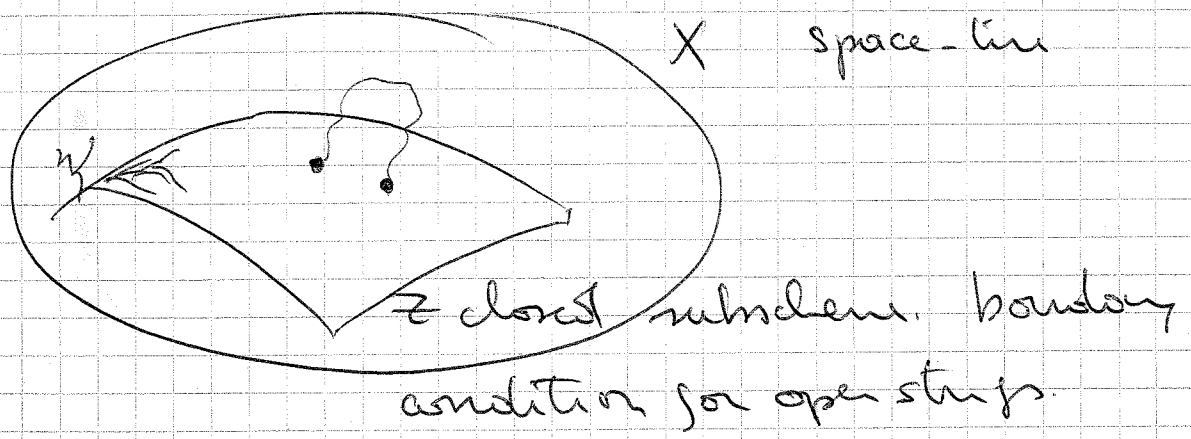 X space-time
Z closed subscheme. boundary
condition for open strings.